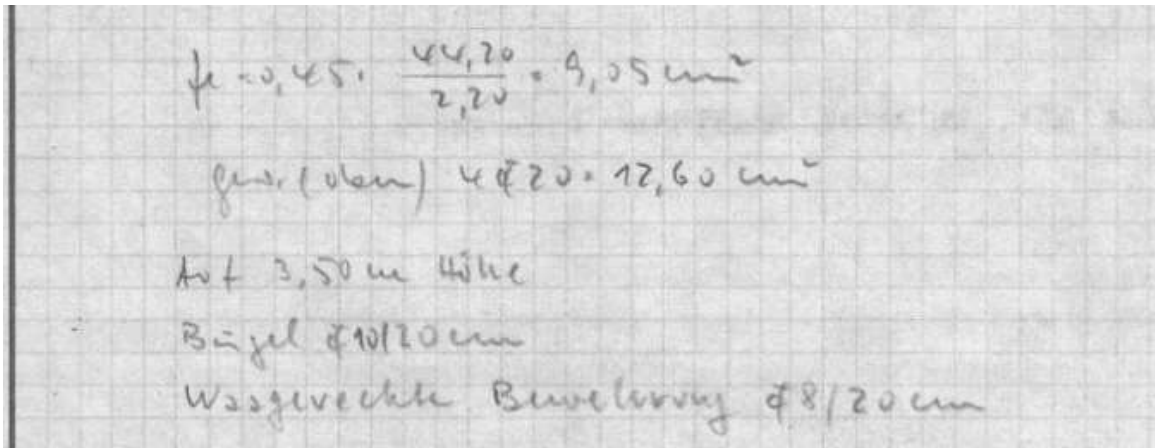 fe = 0,45 · 44,20 / 2,20 = 9,05 cm²
gew. (oben) 4 ∅ 20 = 12,60 cm²
Auf 3,50 m Höhe
Bügel ∅ 10/20 cm
Waagerechte Bewehrung ∅ 8/20 cm